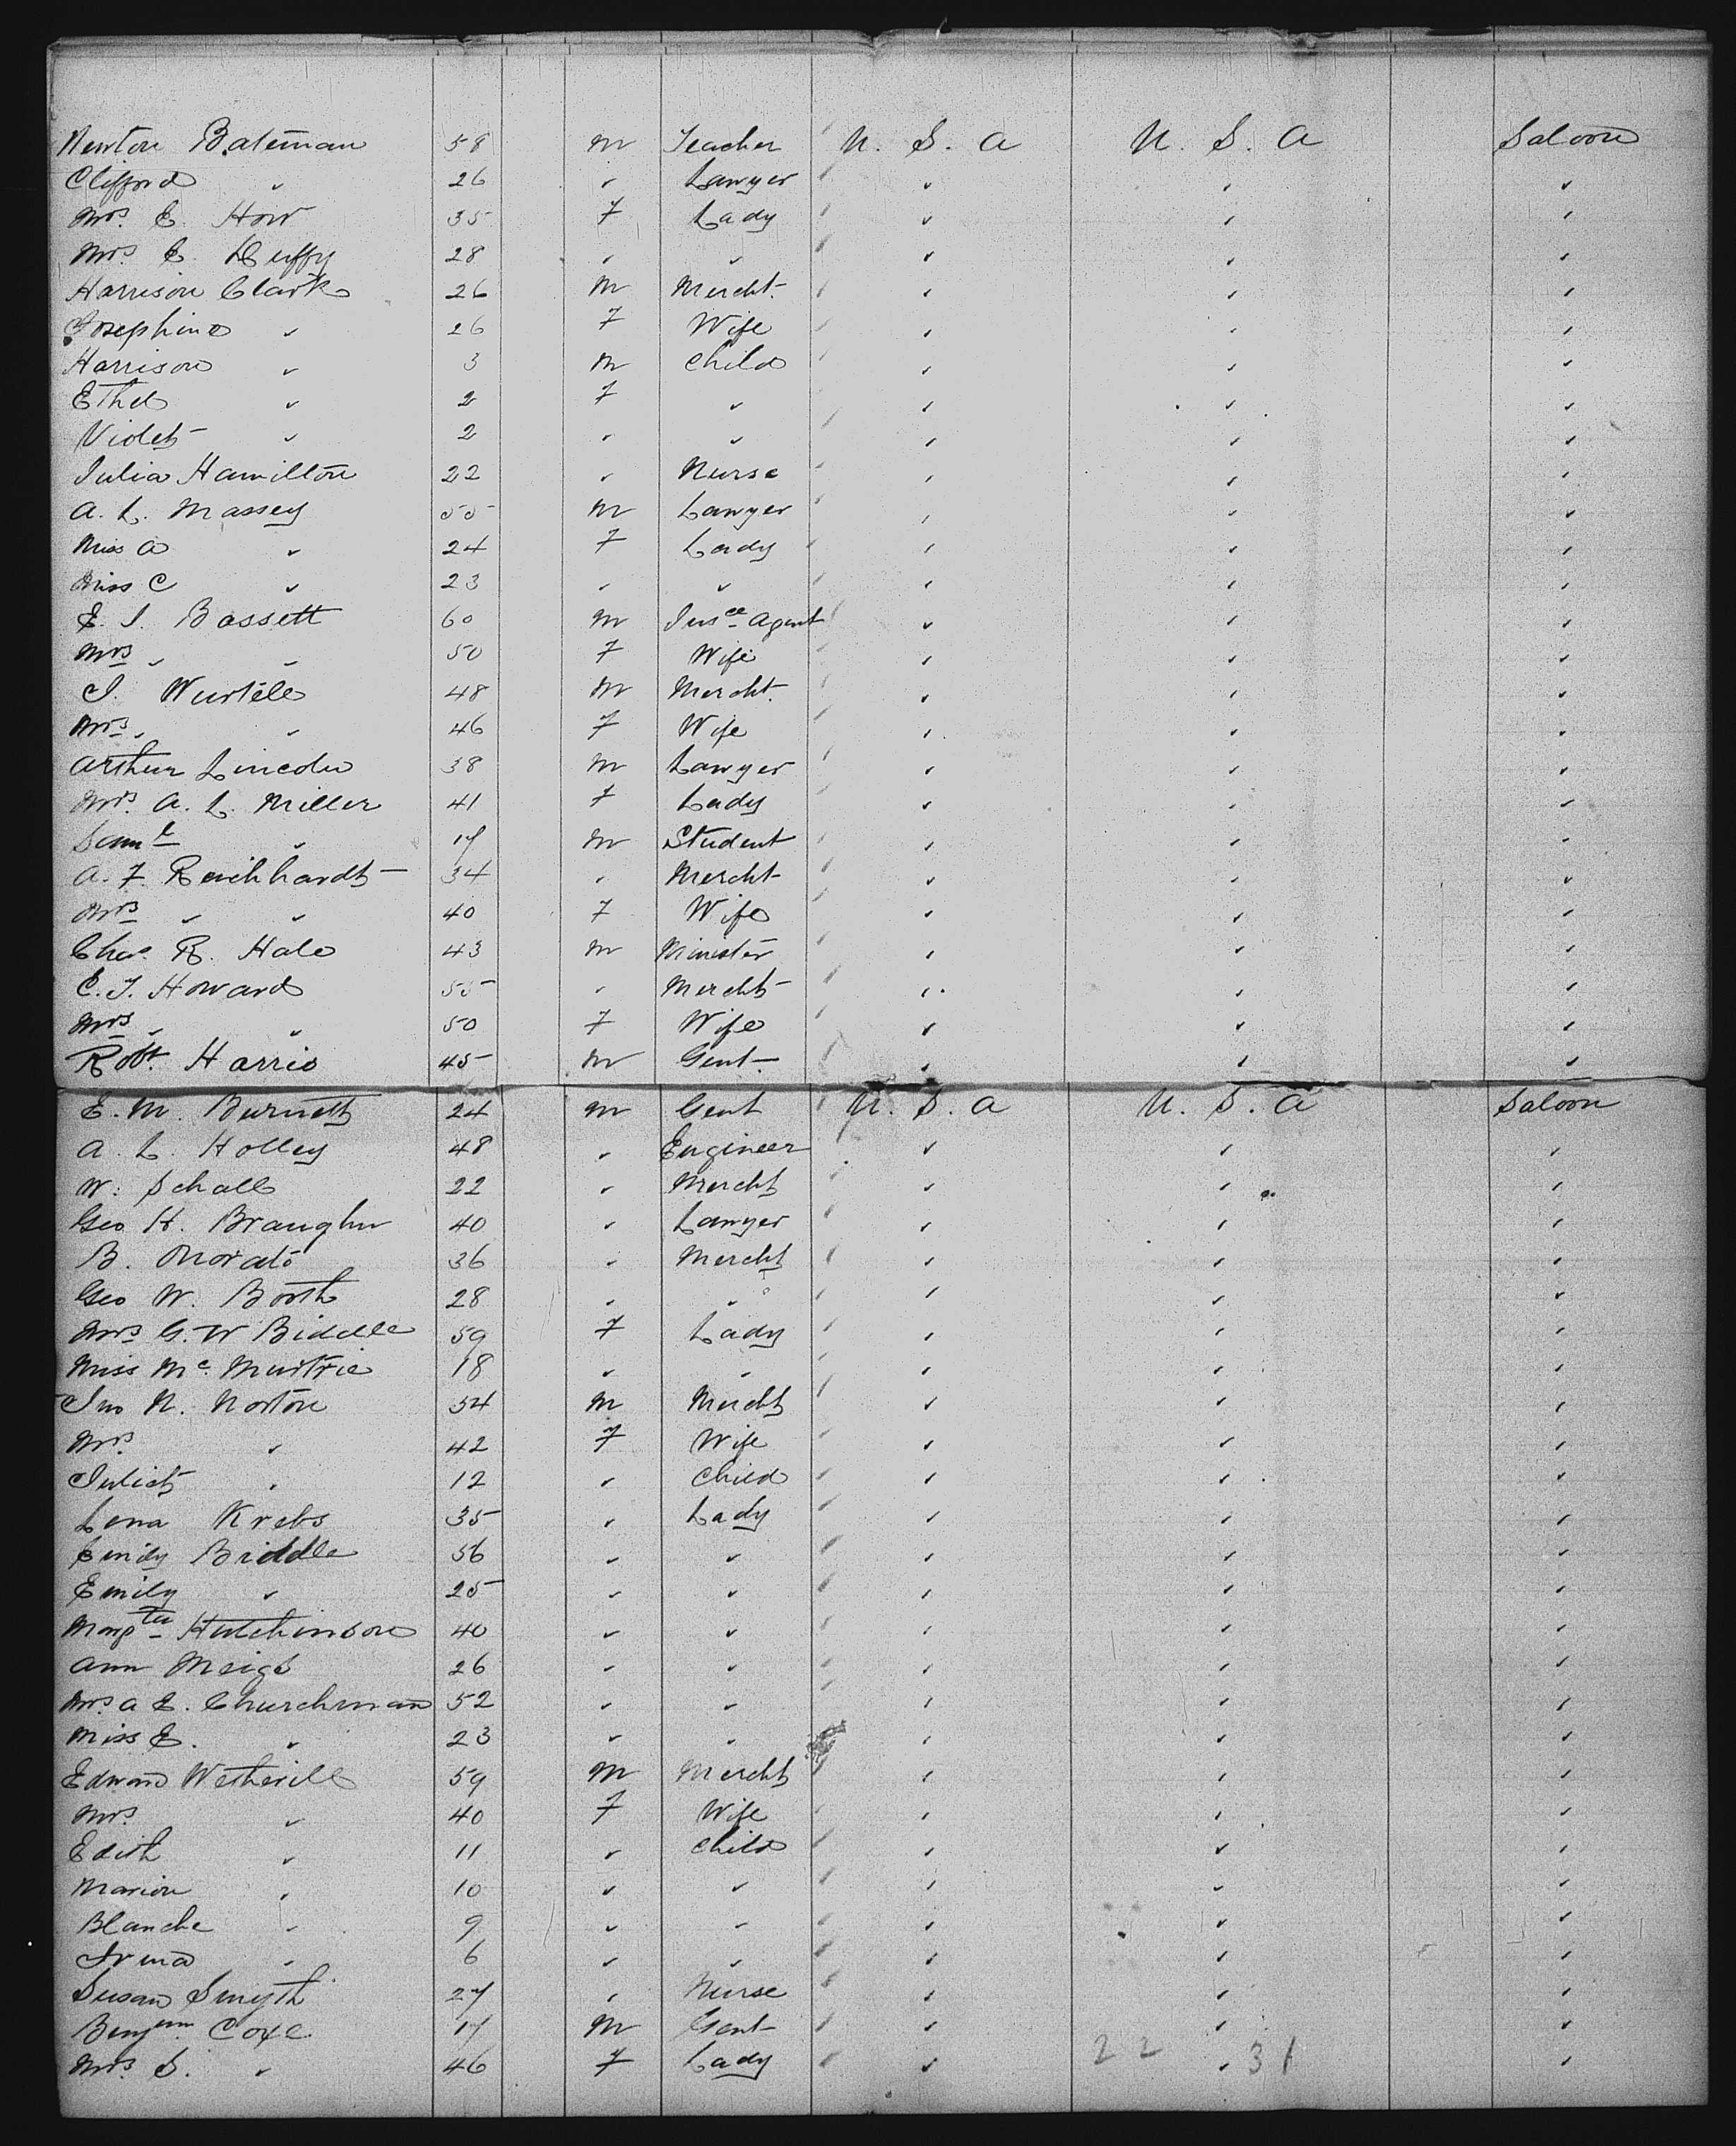 Newton Bateman 58 m Teacher U. S. A U. S. A Saloon
Clifford " 26 " Lawyer " " "
Mrs. E. How 35 F Lady " " "
Mrs. C. Duffy 28 " " " " "
Harrison Clark 26 m Mercht. " " "
Josephine " 26 F Wife " " "
Harrison " 3 m Child " " "
Ethel " 2 F " " " "
Violet " 2 " " " " "
Julia Hamilton 22 " Nurse " " "
A. L. Massey 55 m Lawyer " " "
Miss A " 24 F Lady " " "
Miss C " 23 " " " " "
E. J. Bassett 60 m Insce Agent " " "
Mrs " " 50 F Wife " " "
J. Wurtele 48 m Mercht. " " "
Mrs " " 46 F Wife " " "
Arthur Lincoln 38 m Lawyer " " "
Mrs. A. L. Miller 41 F Lady " " "
Saml " 17 m Student " " "
A. F. Reichhardt 34 " Mercht " " "
Mrs " " 40 F Wife " " "
Chas. R. Hale 43 m Minister " " "
C. T. Howard 55 " Mercht " " "
Mrs " " 50 F Wife " " "
Robt. Harris 45 m Gent. " " "
E. M. Burnett 24 m Gent U. S. A U. S. A Saloon
A. L. Holley 48 " Engineer " " "
W. Schall 22 " Mercht " " "
Geo H. Braughn 40 " Lawyer " " "
B. 36 " Mercht " " "
Geo W. Booth 28 " " " " "
Mrs G. W Biddle 59 F Lady " " "
Miss Mc. Murtrie 18 " " " " "
Jno N. Norton 54 m Mercht " " "
Mrs. " 42 F Wife " " "
Juliet " 12 " Child " " "
Lena Krebs 35 " Lady " " "
Emily Biddle 56 " " " " "
Emily " 25 " " " " "
Hutchinson 40 " " " " "
Ann Meigs 26 " " " " "
Mrs. A E. Churchman 52 " " " " "
Miss E. " 23 " " " " "
Edward Wetherill 59 m Mercht " " "
Mrs. " 40 F Wife " " "
Edith " 11 " Child " " "
Marion " 10 " " " " "
Blanche " 9 " " " " "
Irma " 6 " " " " "
Susan Smyth 27 " Nurse " " "
Benjm. Coxe 17 m Gent " " "
Mrs. S. " 46 F Lady " 22 " 31 "